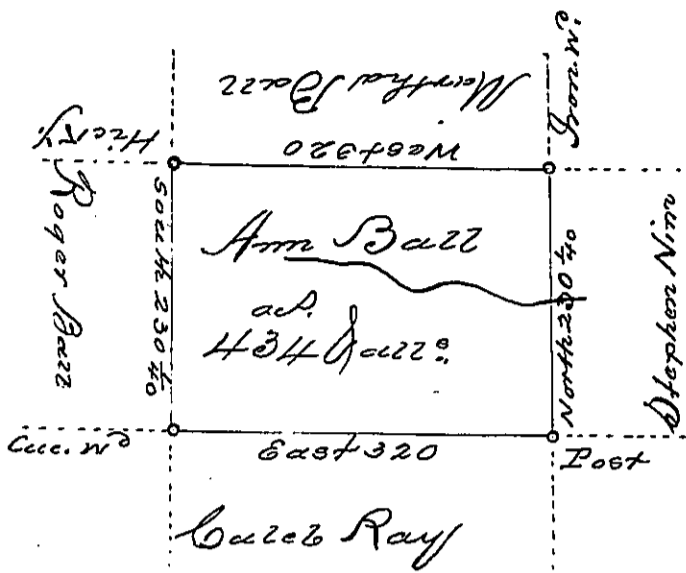 Martha Ball
Hicry.
West 320
Roger Ball
South 230 1/40
Ann Ball
as.
434 & alle:
North 230 1/40
Stephen Nim
Cuc. Ne
East 320
Post
Caleb Ray